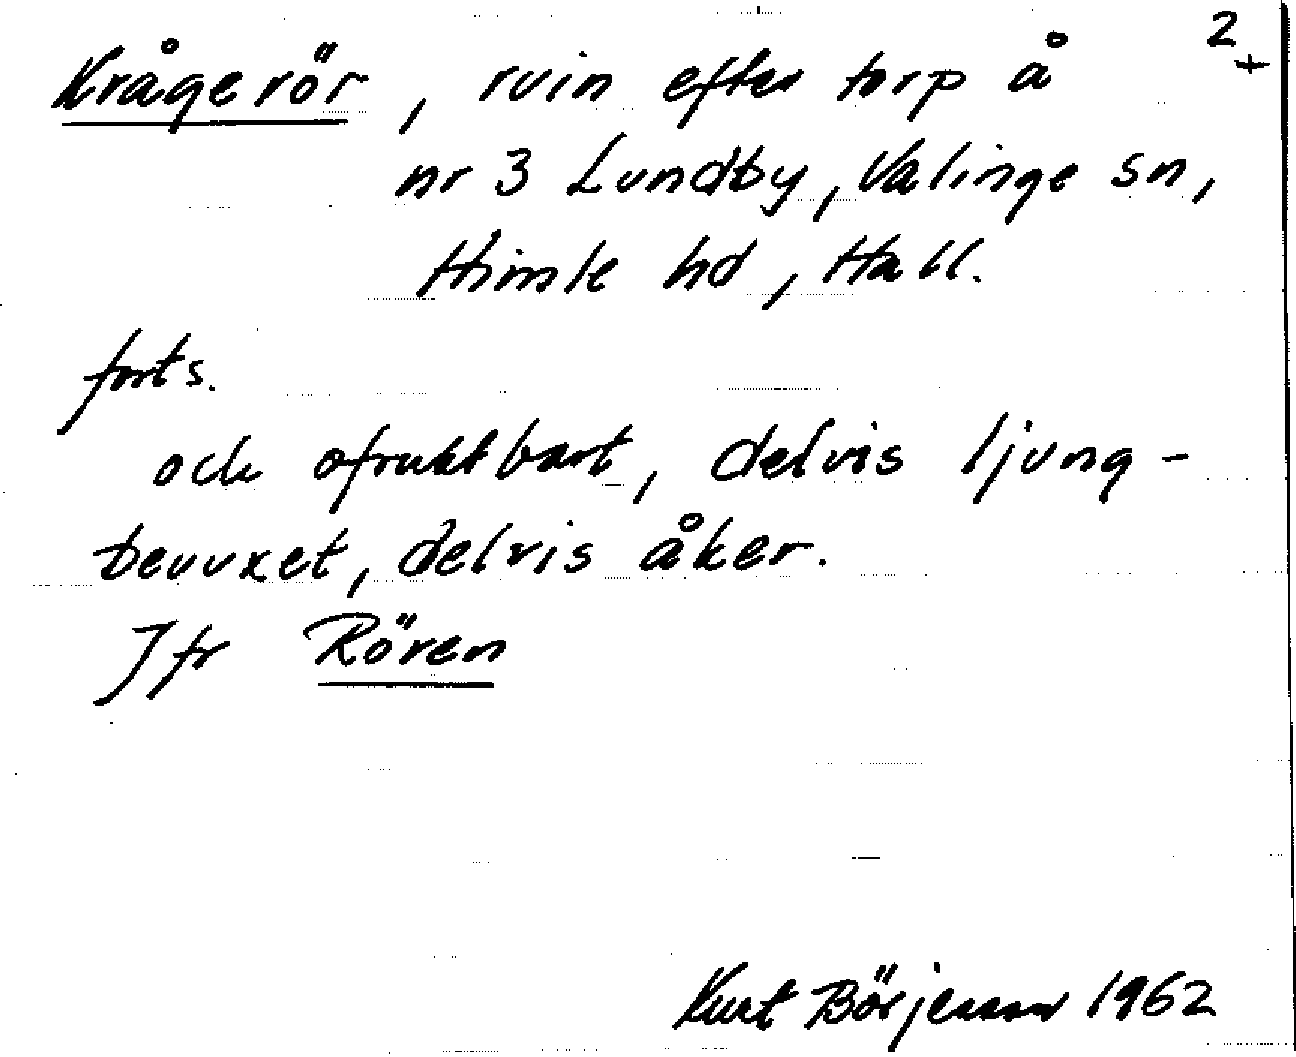 2
+
Krågerör, ruin efter torp å
nr 3 Lundby, Valinge sn,
Himle hd, Hall.
forts.
och ofruktbart, delvis ljung-
bevuxet, delvis åker.
Jfr Rören
Kurt Börjesson 1962